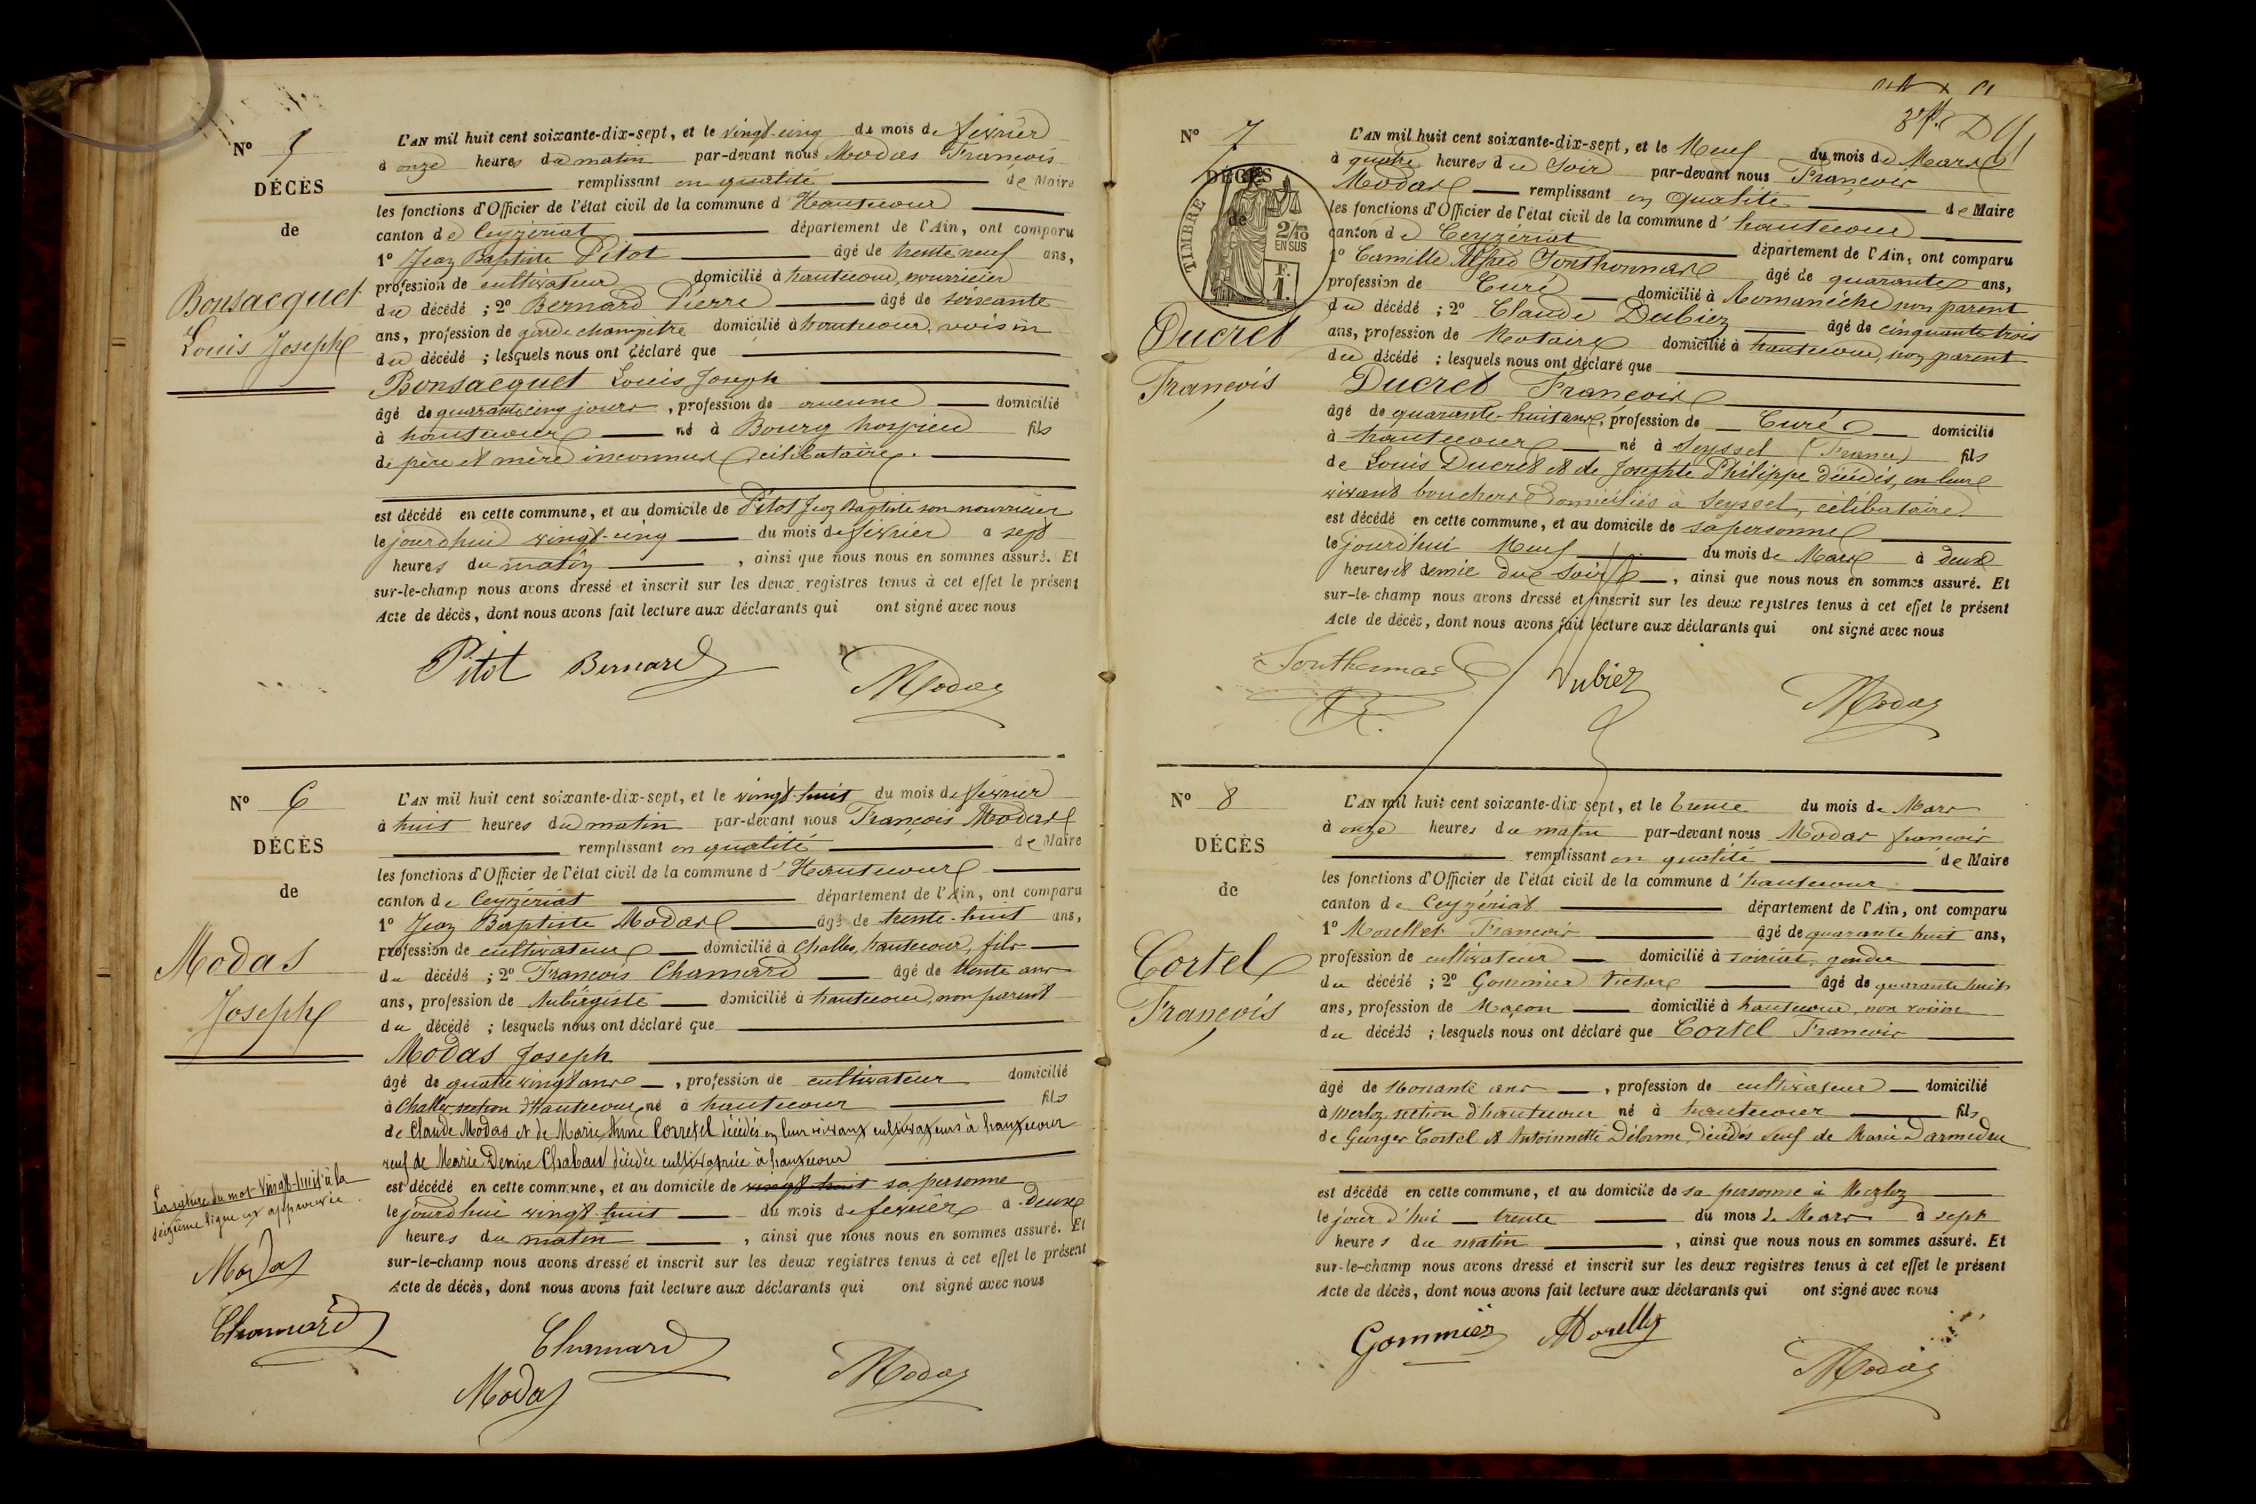 N° 5
DÉCÈS
de
Bonsacquet
Louis Joseph
L'AN mil huit cent soixante-dix-sept, et le vingt-cinq du mois de février
à onze heures du matin par-devant nous Modas François
remplissant en qualité de Maire
les fonctions d'Officier de l'état civil de la commune d'Hautecour
canton de Ceyzériat département de l'Ain, ont comparu
1° Jean Baptiste Pitot âgé de trente neuf ans,
profession de cultivateur domicilié à hautecour, nourricier
du décédé ; 2° Bernard Pierre âgé de soixante
ans, profession de garde champêtre domicilié à hautecour, voisin
du décédé ; lesquels nous ont déclaré que
Bonsacquet Louis Joseph
âgé de quarante cinq jours, profession de aucune domicilié
à hautecour né à Bourg hospice fils
de père et mère inconnus, célibataire.
est décédé en cette commune, et au domicile de Pitot Jean Baptiste son nourricier
le jourdhui vingt-cinq du mois de février a sept
heures du matin, ainsi que nous nous en sommes assuré. Et
sur-le-champ nous avons dressé et inscrit sur les deux registres tenus à cet effet le présent
Acte de décès, dont nous avons fait lecture aux déclarants qui ont signé avec nous
Pitot Bernard Modas
N° 6
DÉCÈS
de
Modas
Joseph
L'AN mil huit cent soixante-dix-sept, et le vingt-huit du mois de février
à huit heures du matin par-devant nous François Modas
remplissant en qualité de Maire
les fonctions d'Officier de l'état civil de la commune d'Hautecour
canton de Ceyzériat département de l'Ain, ont comparu
1° Jean Baptiste Modas âgé de trente-huit ans,
profession de cultivateur domicilié à Challes, hautecour, fils
du décédé ; 2° François Chamard âgé de trente ans
ans, profession de Aubergiste domicilié à hautecour, non parent
du décédé ; lesquels nous ont déclaré que
Modas Joseph
âgé de quatre vingt ans, profession de cultivateur domicilié
à Challes, section d'Hautecour né à hautecour fils
de Claude Modas et de Marie Anne Corretel décédés en leur vivant cultivateurs à hautecour
veuf de Marie Denise Chaban décédée cultivatrice à hautecour
est décédé en cette commune, et au domicile de vingt huit sa personne
le jourdhui vingt-huit du mois de février a Deux
heures du matin, ainsi que nous nous en sommes assuré. Et
sur-le-champ nous avons dressé et inscrit sur les deux registres tenus à cet effet le présent
Acte de décès, dont nous avons fait lecture aux déclarants qui ont signé avec nous
La rature du mot vingt-huit à la
seizième ligne est approuvée.
Modas
Chamard
Chamard
Modas
Modas
N° 7
DÉCÈS
de
TIMBRE
2/10
EN SUS
Ducret
François
L'AN mil huit cent soixante-dix-sept, et le Neuf du mois de Mars
à quatre heures du Soir par-devant nous François
Modas remplissant en qualité de Maire
les fonctions d'Officier de l'état civil de la commune d'hautecour
canton de Ceyzériat département de l'Ain, ont comparu
1° Camille Alfred Jonthonnard âgé de quarante ans,
profession de Curé domicilié à Romanèche non parent
du décédé ; 2° Claude Dubiez âgé de cinquante trois
ans, profession de Notaire domicilié à hautecour, non parent
du décédé ; lesquels nous ont déclaré que
Ducret François
âgé de quarante-huit ans, profession de Curé domicilié
à hautecour né à Seyssel (France) fils
de Louis Ducret et de Josephte Philippe décédés, en leur
vivant bouchers domiciliés à Seyssel, célibataire
est décédé en cette commune, et au domicile de sa personne
le jourd'hui Neuf du mois de Mars à deux
heures et demie du Soir, ainsi que nous nous en sommes assuré. Et
sur-le-champ nous avons dressé et inscrit sur les deux registres tenus à cet effet le présent
Acte de décès, dont nous avons fait lecture aux déclarants qui ont signé avec nous
Jonthonnard Dubiez Modas
N° 8
DÉCÈS
de
Cortel
François
L'AN mil huit cent soixante-dix-sept, et le Trente du mois de Mars
à onze heures du matin par-devant nous Modas françois
remplissant en qualité de Maire
les fonctions d'Officier de l'état civil de la commune d'hautecour
canton de Ceyzériat département de l'Ain, ont comparu
1° Morellet François âgé de quarante huit ans,
profession de cultivateur domicilié à Soiriat, gendre
du décédé ; 2° Gommier Victor âgé de quarante huit
ans, profession de Maçon domicilié à hautecour, non voisin
du décédé ; lesquels nous ont déclaré que Cortel François
âgé de Nonante ans, profession de cultivateur domicilié
à Merloz, section d'hautecour né à hautecour fils
de Georges Cortel et Antoinnette Délorme, Décédés Veuf de Marie Darmedru
est décédé en cette commune, et au domicile de sa personne à Merloz
le jour d'hui trente du mois de Mars à sept
heures du matin, ainsi que nous nous en sommes assuré. Et
sur-le-champ nous avons dressé et inscrit sur les deux registres tenus à cet effet le présent
Acte de décès, dont nous avons fait lecture aux déclarants qui ont signé avec nous
Gommier Morellet Modas